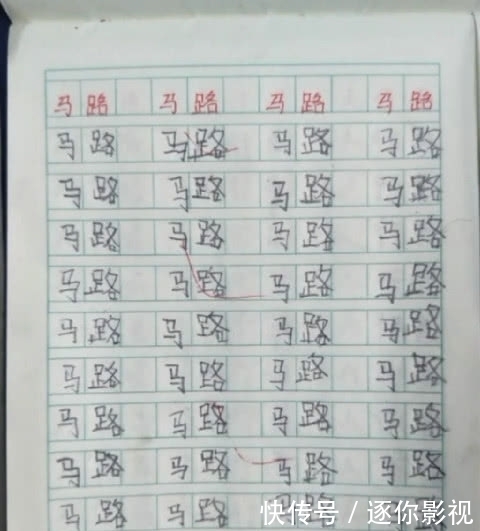 马路 马路 马路 马路
马路 马路 马路 马路
马路 马路 马路 马路
马路 马路 马路 马路
马路 马路 马路 马路
马路 马路 马路 马路
马路 马路 马路 马路
马路 马路 马路 马路
马路 马路 马路 马路
马路 马路 马路 马路
快传号 / 逐你影视